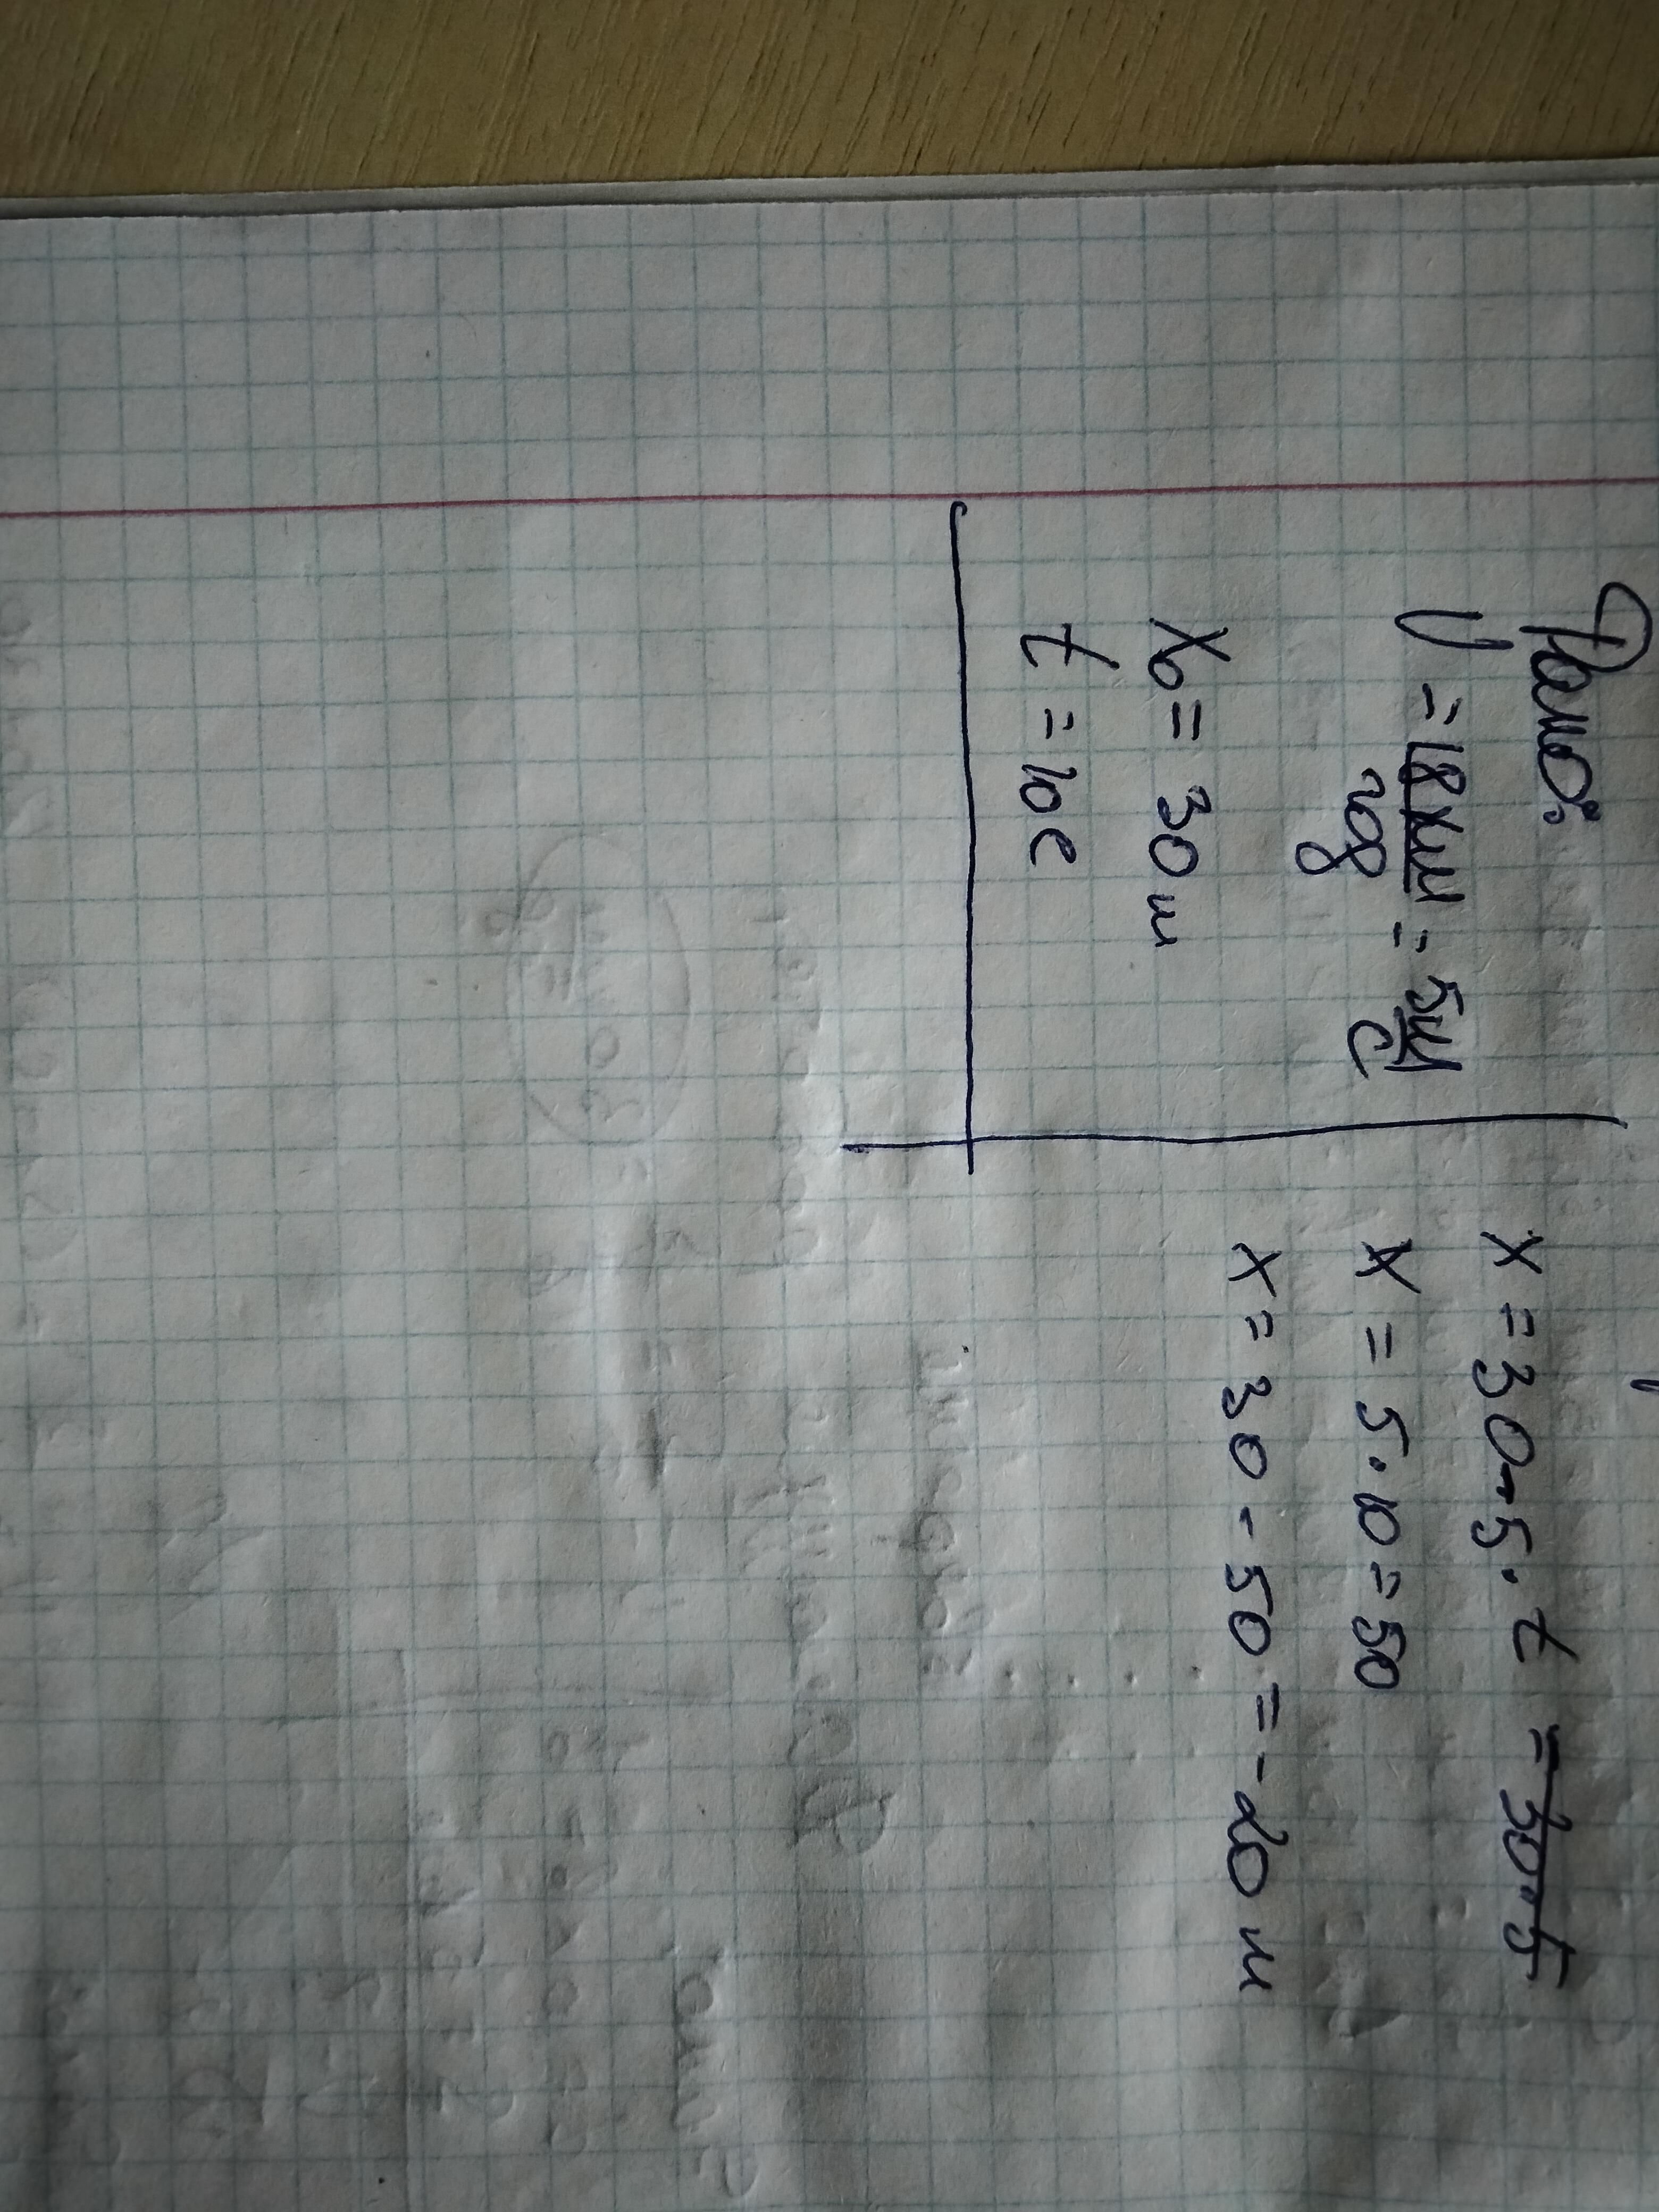 Дано:
V = 18 км/год = 5 м/с
x₀ = 30 м
t = 10 с
x = 30 - 5 · t = 30 - 5
x = 5 · 10 = 50
x = 30 - 50 = -20 м